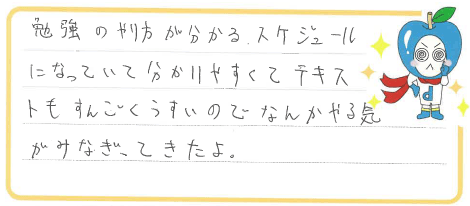 勉強のやり方が分かる、スケジュール
になっていて分かりやすくてテキス
トもすんごくうすいのでなんかやる気
がみなぎってきたよ。
d